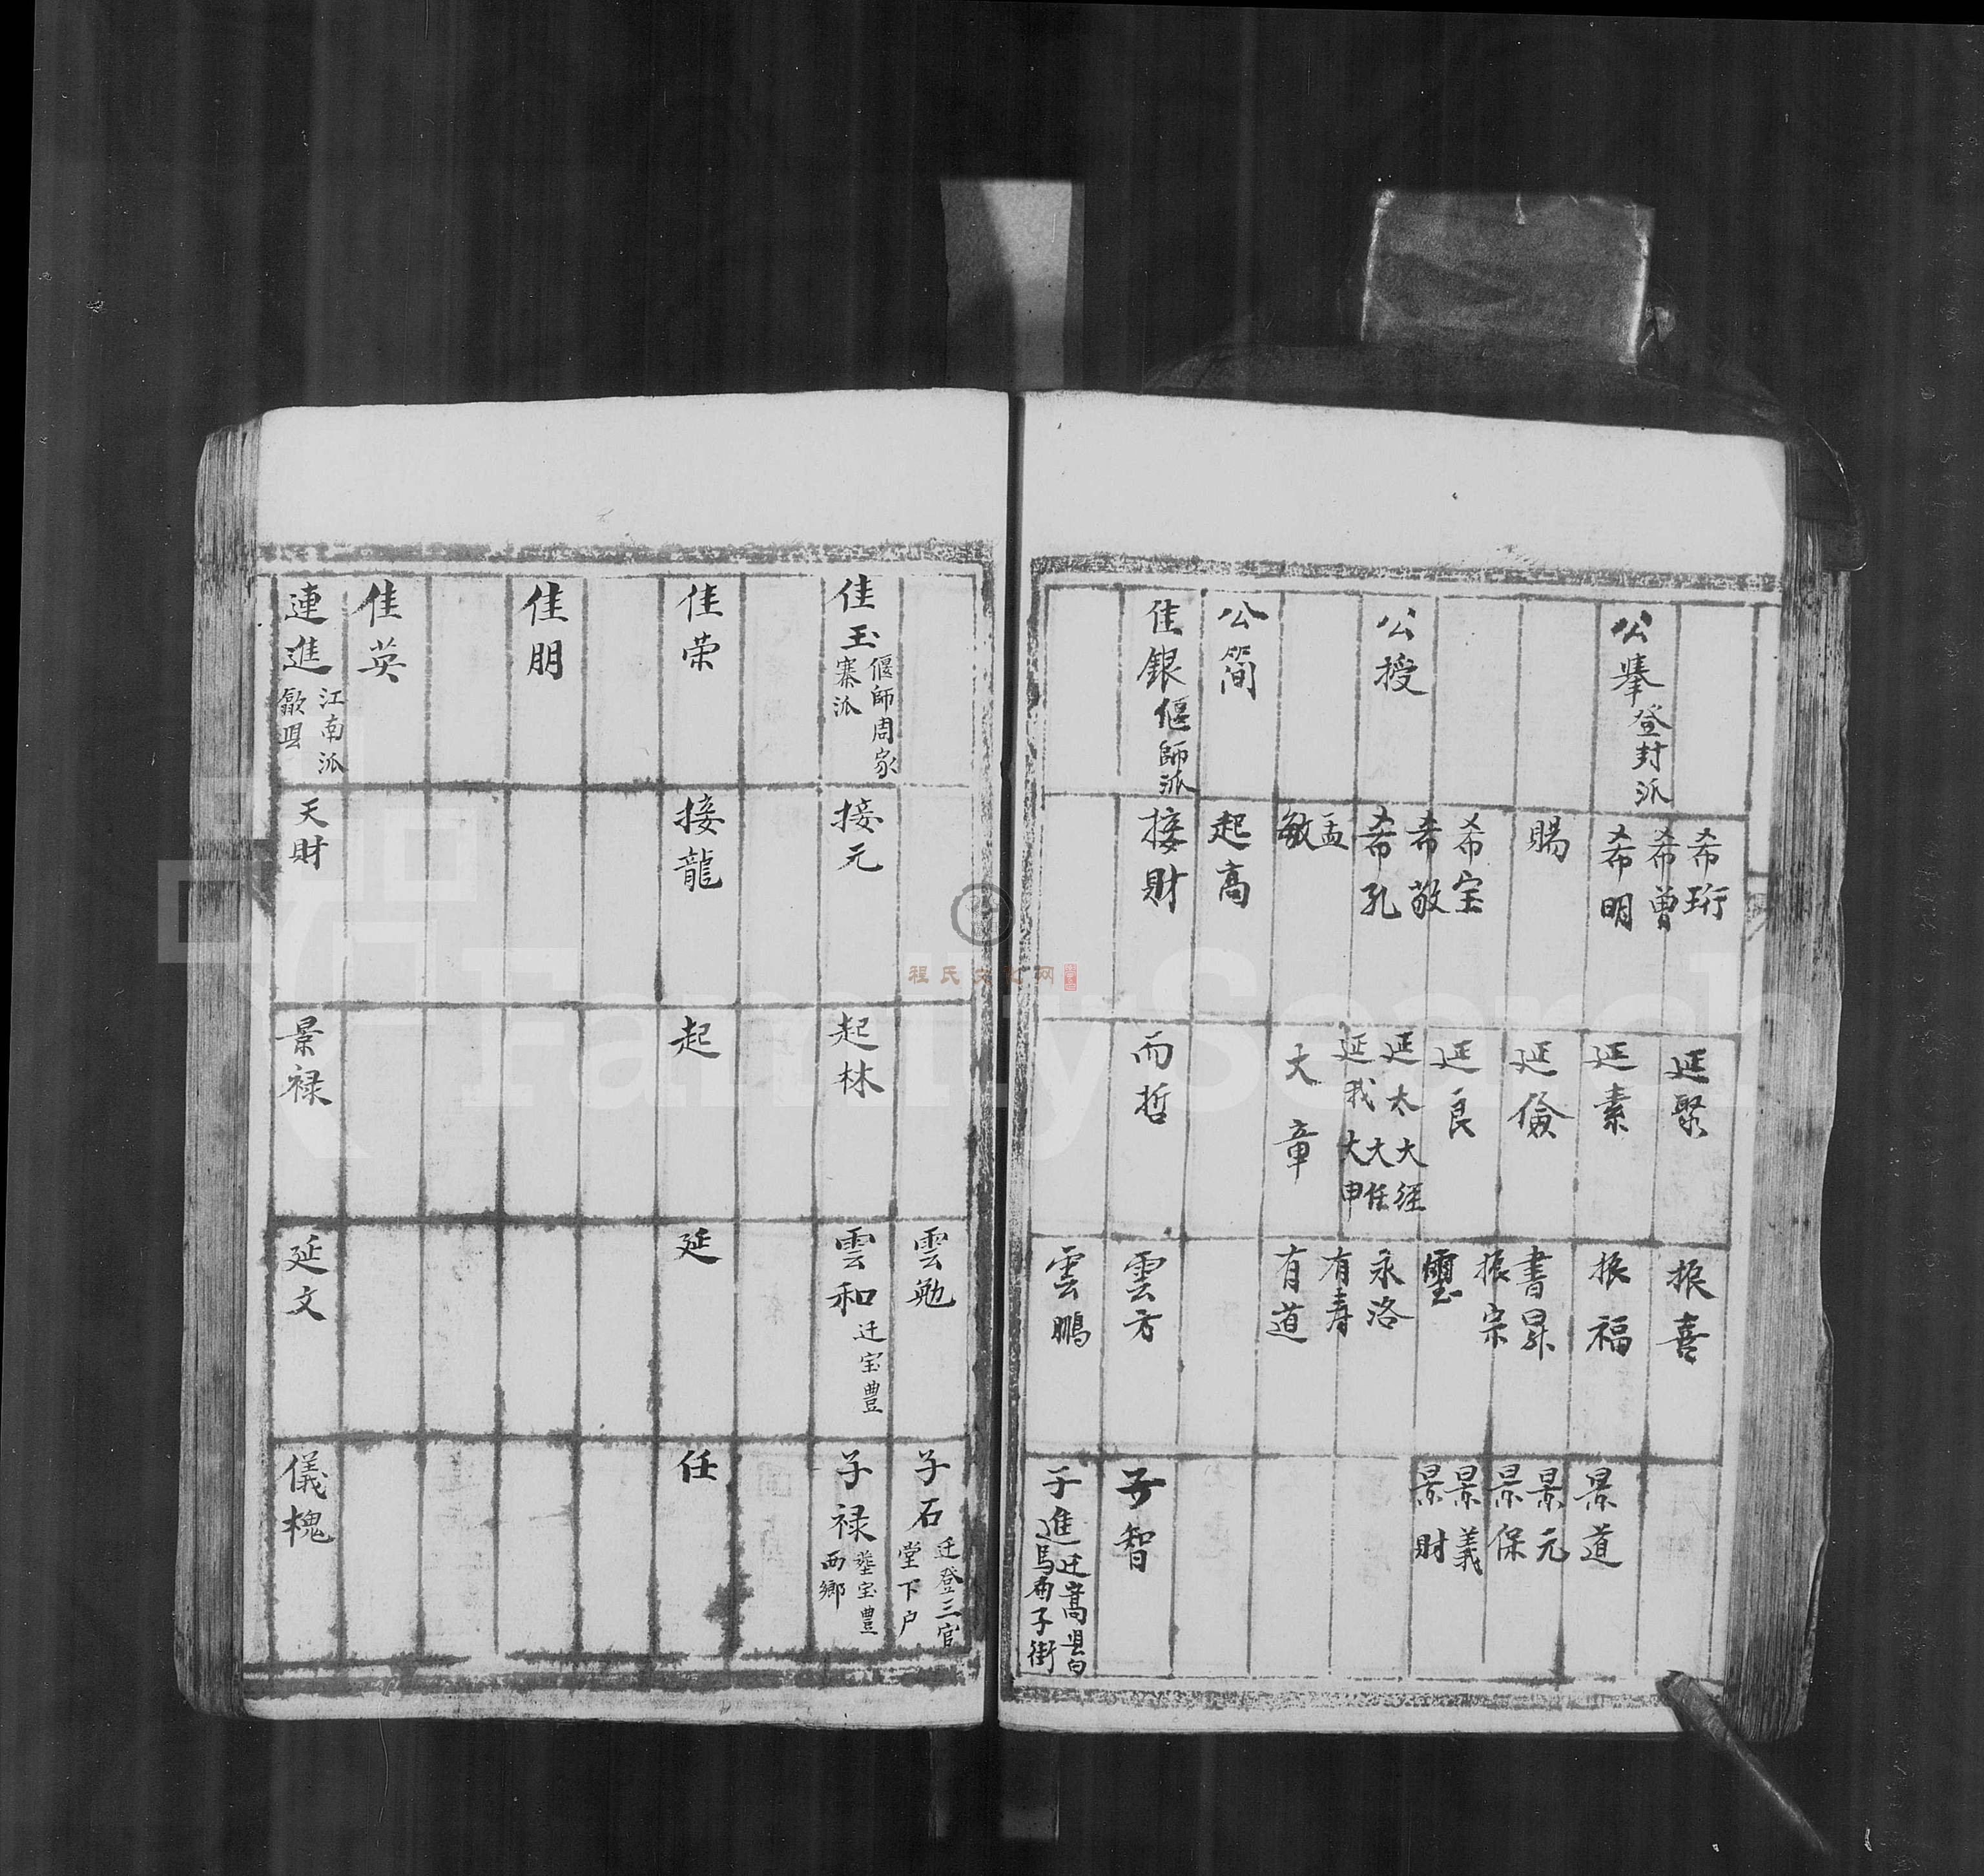 公舉登封派
公授
公简
佳銀偃師派
希珩
希曾
希明
賜
希宝
希敬
希孔
孟
敏
起高
接財
延聚
延素
延儉
延良
延太
延我
大經
大任
大申
大章
而哲
振喜
振福
書昇
振宗
璽
永洛
有寿
有道
雲方
雲鵬
景道
景元
景保
景義
景財
子智
子進
迁嵩縣白
馬布子街
佳玉
偃師周家
寨派
佳荣
佳朋
佳英
連進
江南派
歙县
接元
接龍
天財
起林
起
景禄
雲勉
雲和迁宝豊
延
延文
子石
迁登三官
堂下户
子禄
葬宝豊
西鄉
任
儀槐
程氏文化网
FamilySearch